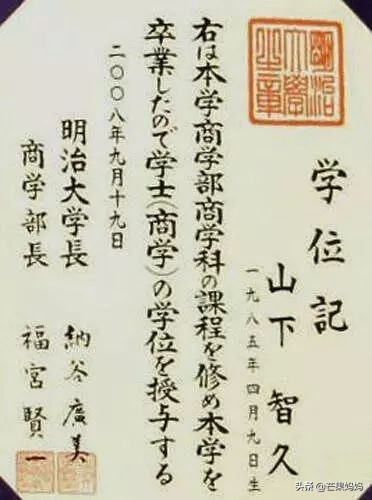 明治
大學
之章
学位記
山下智久
一九八五年四月九日生
右は本学商学部商学科の課程を修め本学を
卒業したので学士(商学)の学位を授与する
二〇〇八年九月十九日
明治大学長 納谷廣美
商学部長 福宮賢一
头条 @芒果妈妈